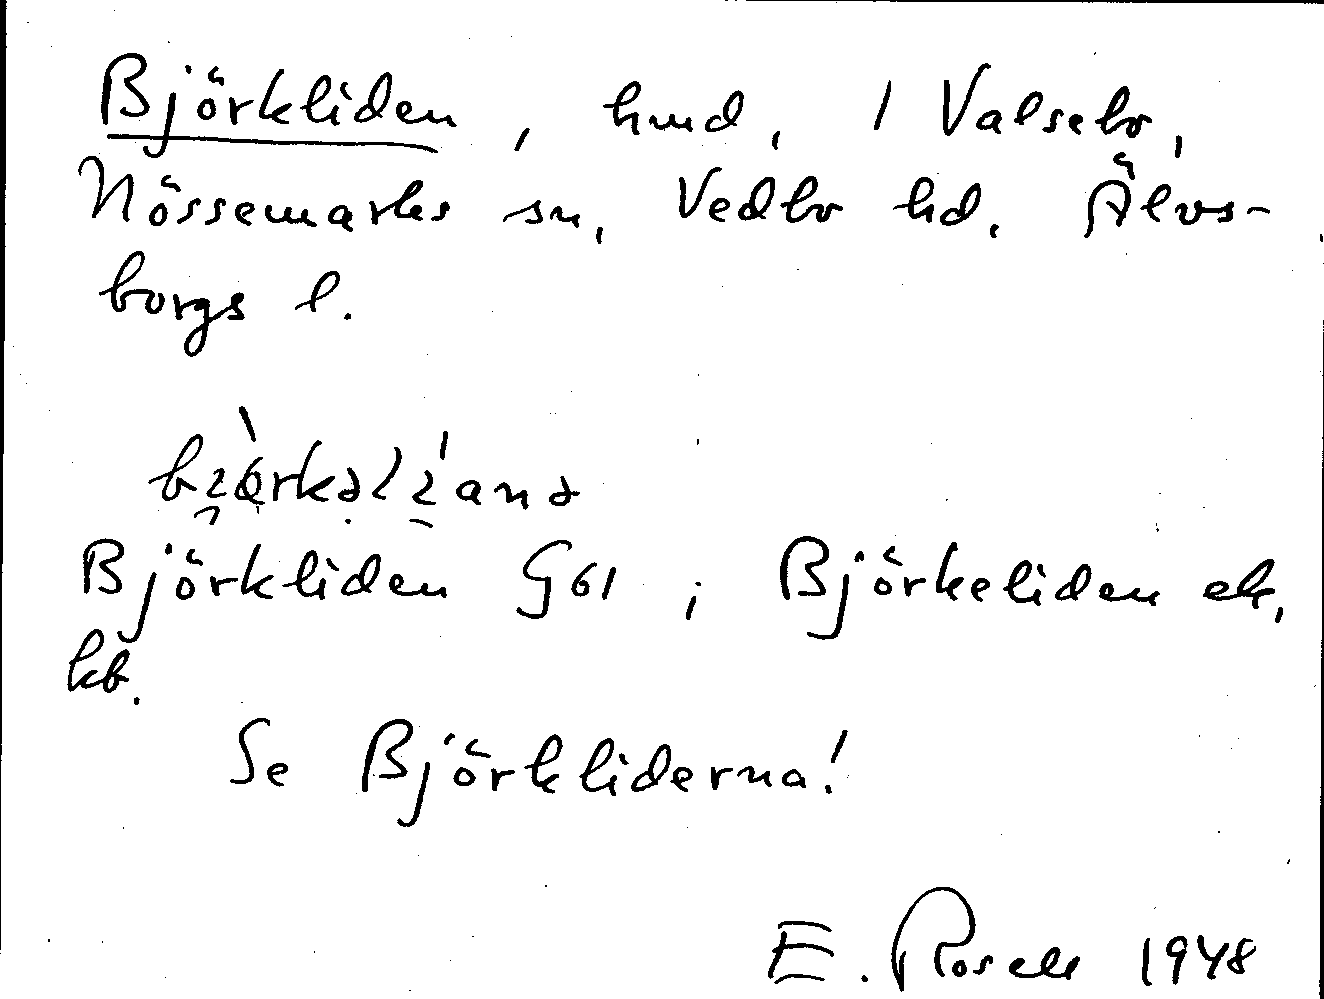 Björkliden, hmd, 1 Valsebo,
Nössemarks sn, Vedbo hd. Älvs-
borgs l.
Björkliden G61; Björkeliden ek,
kb.
Se Björkliderna!
E. Rosell 1948